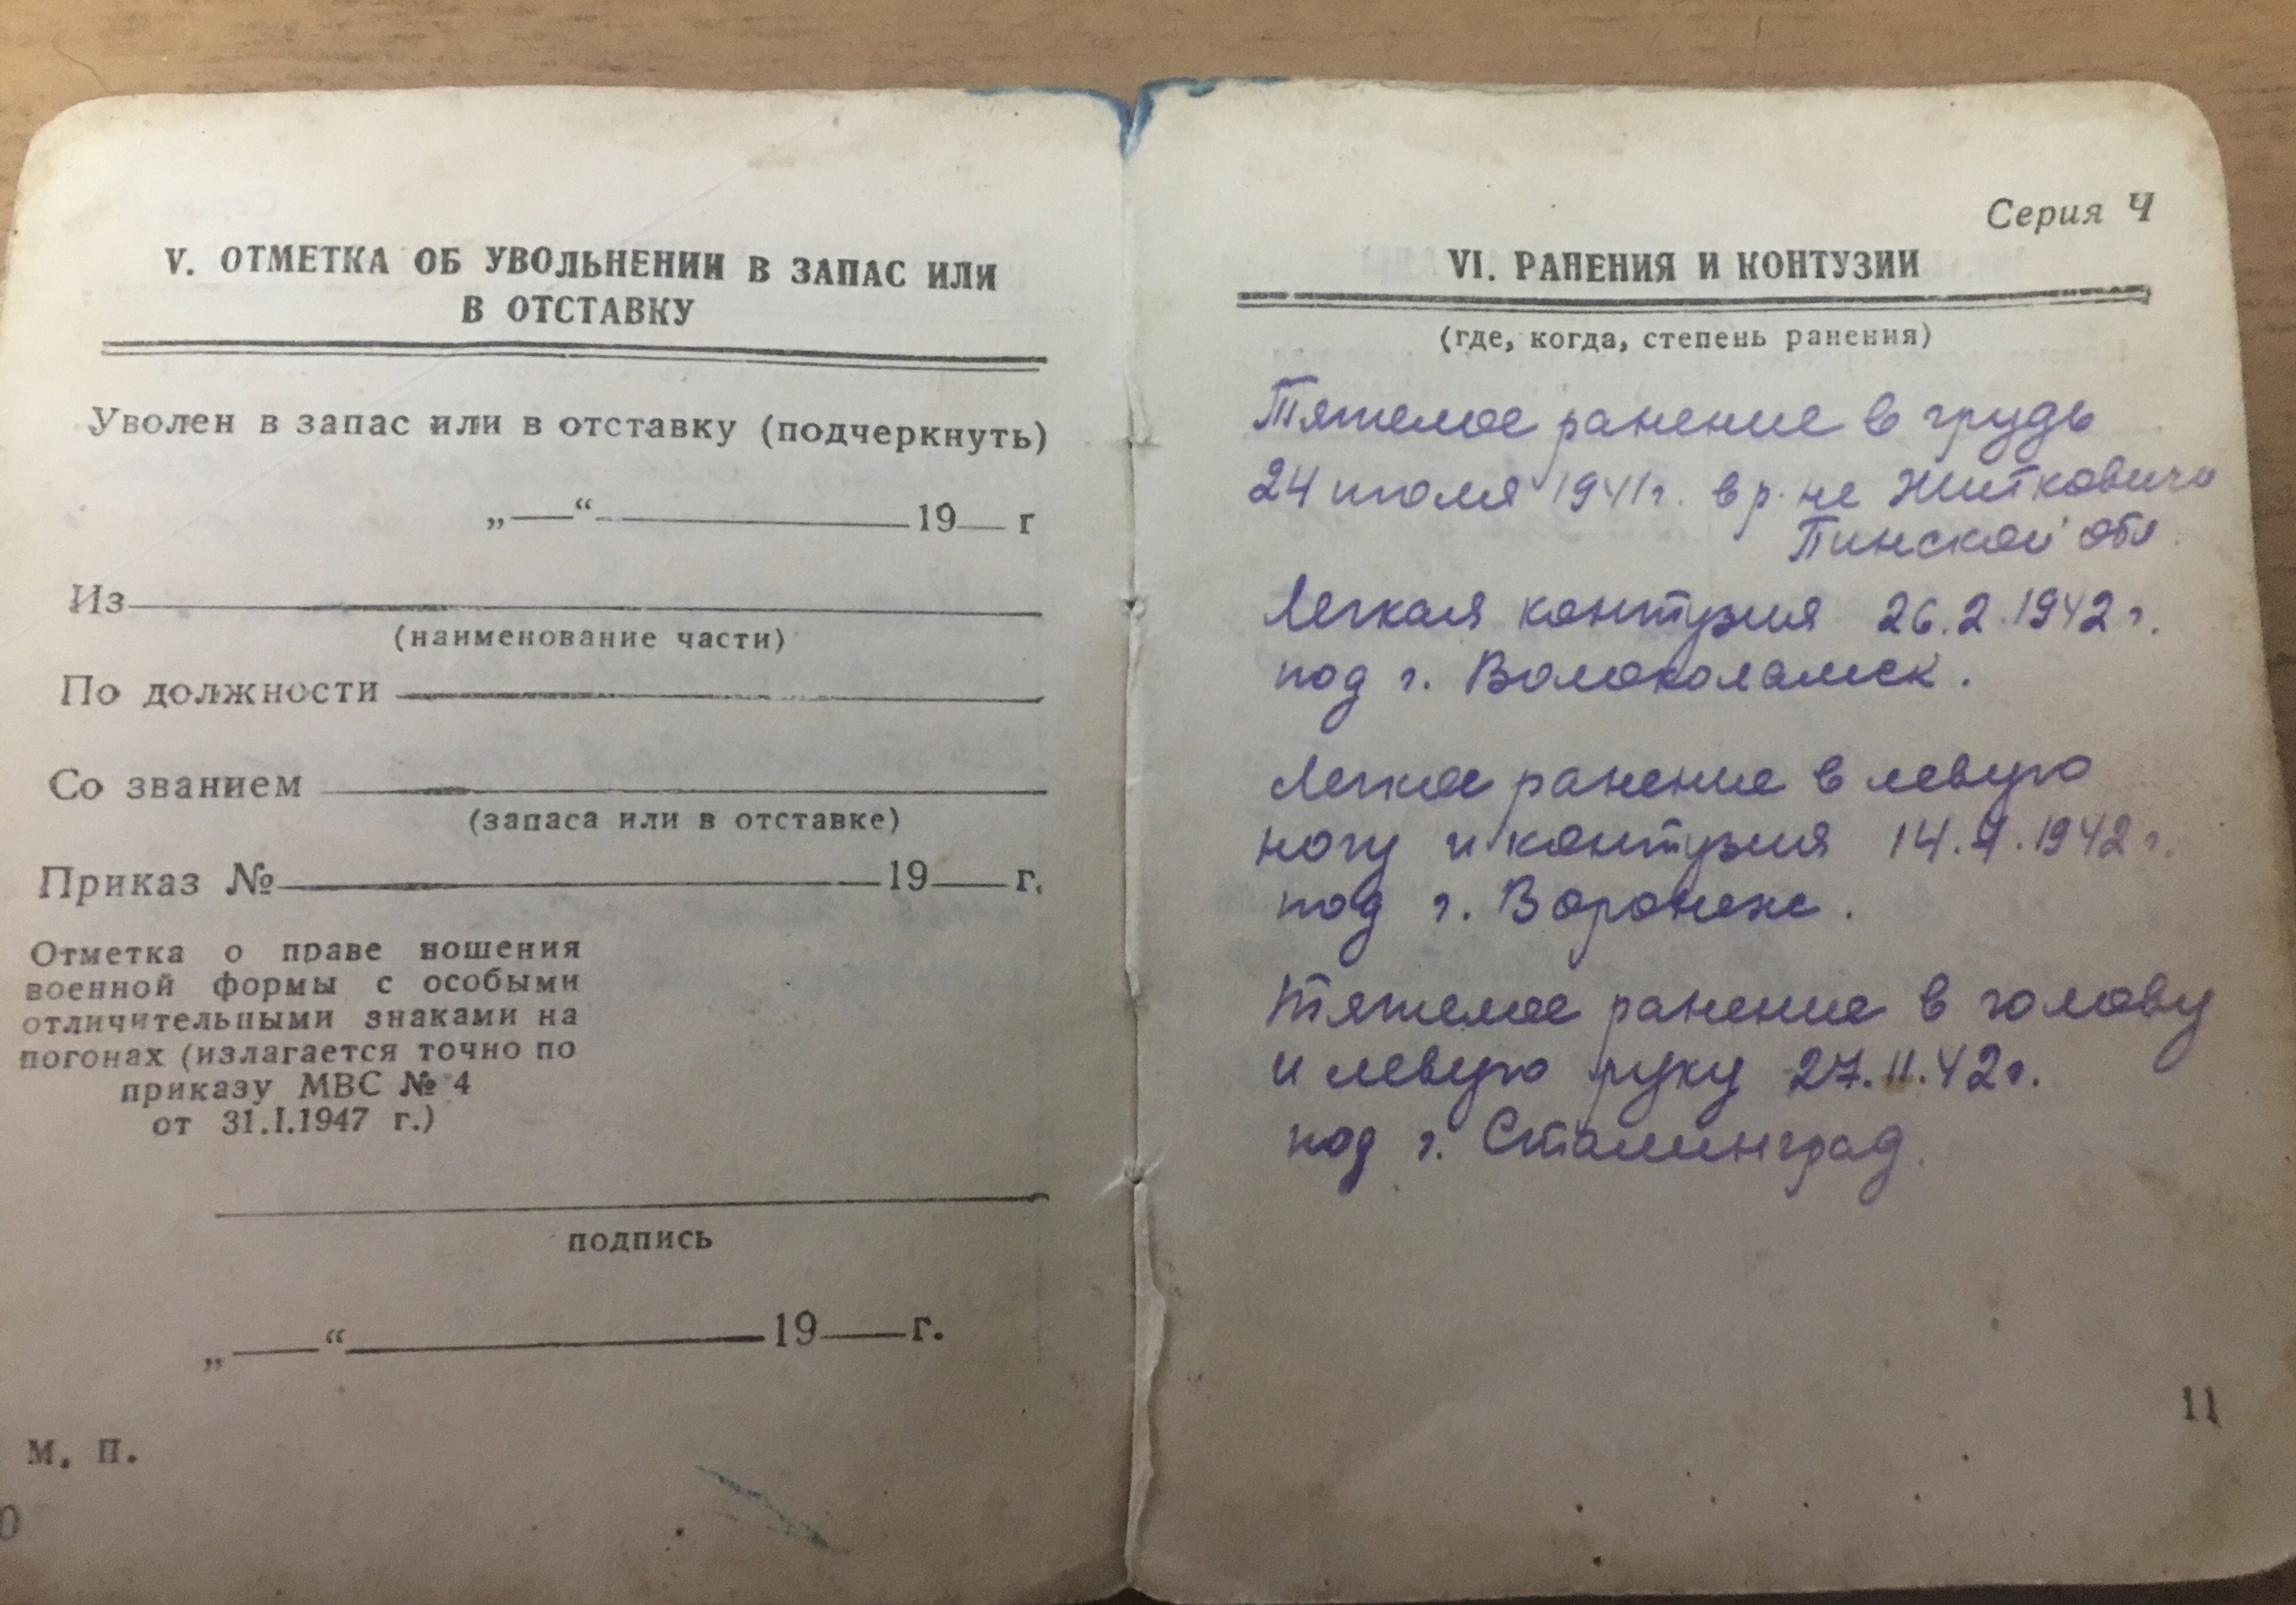 V. ОТМЕТКА ОБ УВОЛЬНЕНИИ В ЗАПАС ИЛИ
В ОТСТАВКУ
Уволен в запас или в отставку (подчеркнуть)
„—“ 19 г
Из
(наименование части)
По должности
Со званием
(запаса или в отставке)
Приказ № 19 г.
Отметка о праве ношения
военной формы с особыми
отличительными знаками на
погонах (излагается точно по
приказу МВС № 4
от 31.I.1947 г.)
подпись
„—“ 19 г.
М. П.
0
Серия Ч
VI. РАНЕНИЯ И КОНТУЗИИ
(где, когда, степень ранения)
Тяжелое ранение в грудь
24 июля 1941г. в р-не Житковичи
Пинской обл.
Легкая контузия 26.2.1942 г.
под г. Волоколамск.
Легкое ранение в левую
ногу и контузия 1942 г.
под г. Воронеж.
Тяжелое ранение в голову
и левую руку 27.11.42г.
под г. Сталинград.
11